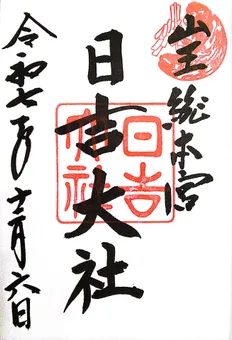 山王総本宮
日吉大社
令和七年十二月六日
日吉大社